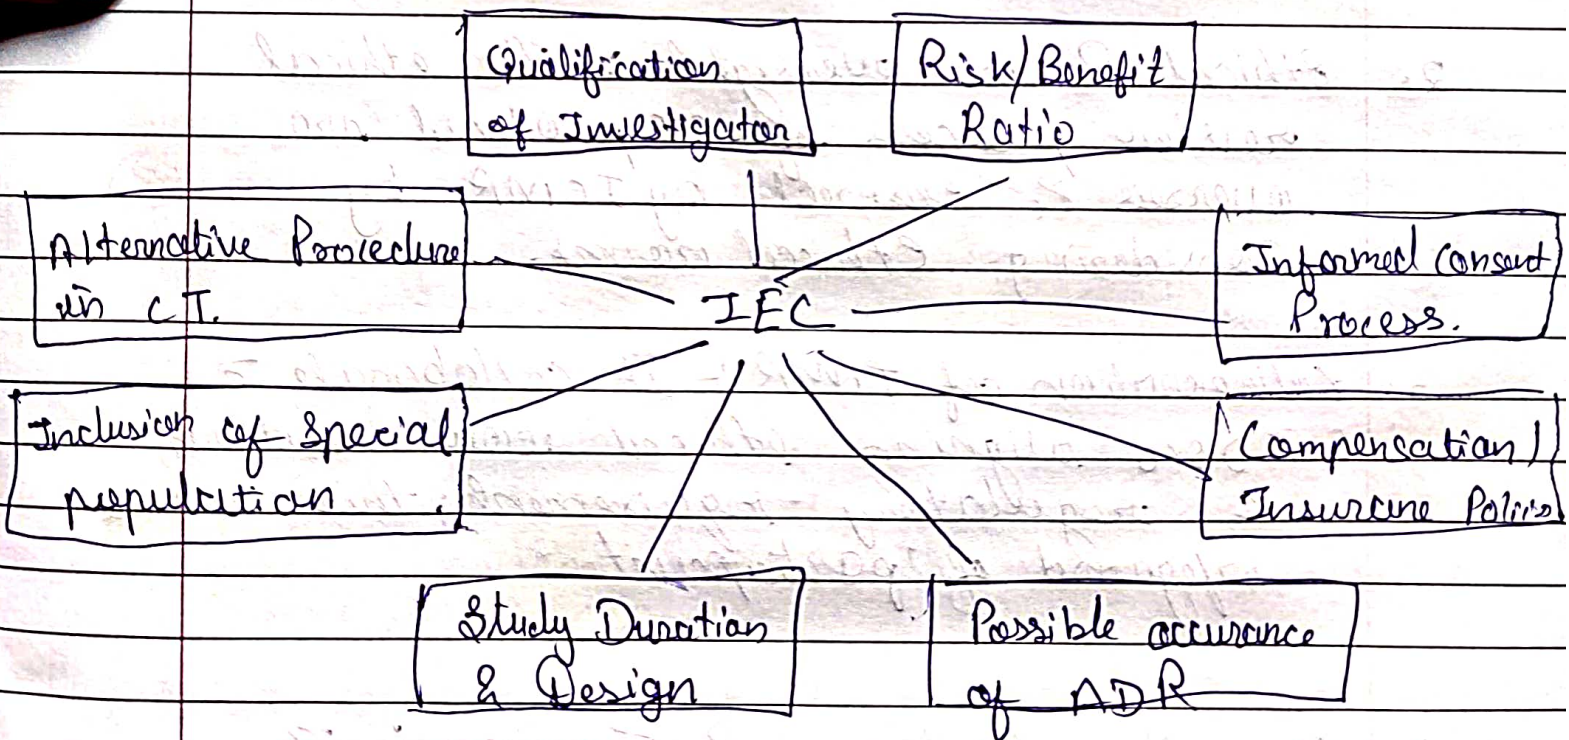 Qualification
of Investigator
Risk/Benefit
Ratio
Alternative Procedure
in C.T.
IEC
Informed Consent
Process.
Inclusion of Special
population
Compensation/
Insurance
Study Duration
& Design
Possible occurance
of ADR